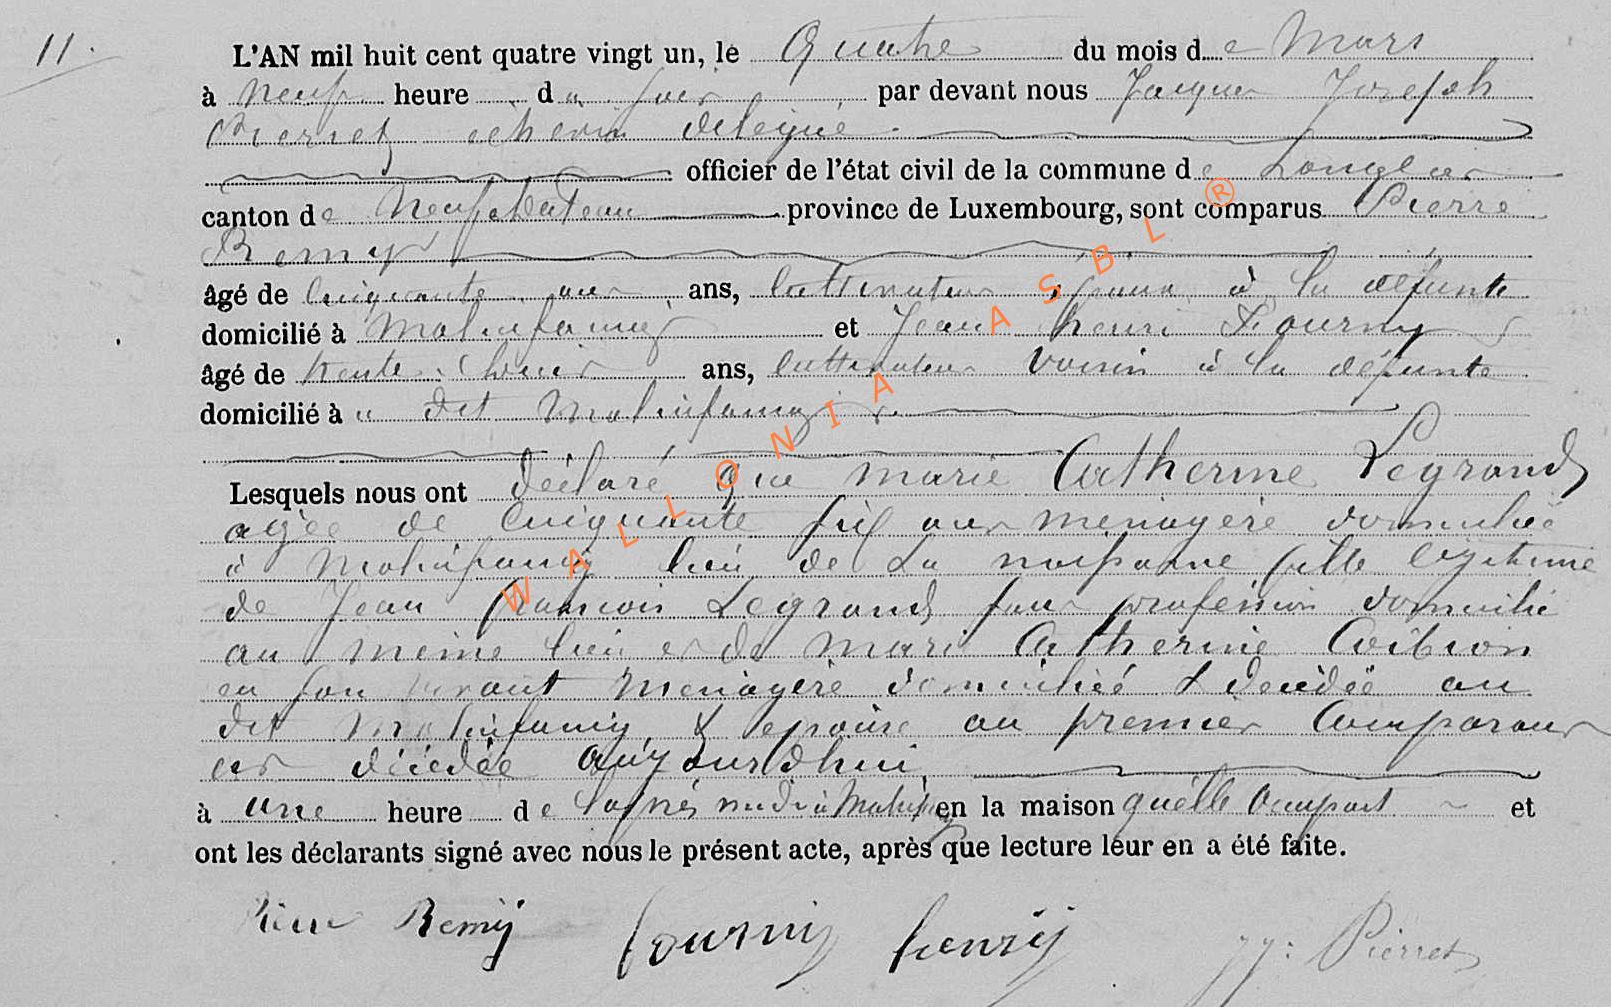 11.
L'AN mil huit cent quatre vingt un, le Quatre du mois de Mars
à neuf heure du soir par devant nous Jacques Joseph
Pierret echevin délégué
officier de l'état civil de la commune de Longlier
canton de Neufchâteau province de Luxembourg, sont comparus Pierre
Remy
âgé de cinquante ans, cultivateur époux à la défunte
domicilié à Molinfaing et Jean henri Fourny
âgé de trente ans, cultivateur voisin à la défunte
domicilié à u dit Molinfaing
Lesquels nous ont déclaré que marie Catherine Legrand
agée de Cinquante six ans menagère domiciliée
à Molinfaing lieu de La naissance fille légitime
de Jean françois Legrand sans profession domicilié
au même lieu et de Marie Catherine Coibion
en son vivant menagère domiciliée & décédée au
dit Molinfaing, & epouse au premier Comparant
est décédée aujourdhui,
à une heure de l'après midi à Molinfaing en la maison qu'elle occupait et
ont les déclarants signé avec nous le présent acte, après que lecture leur en a été faite.
Pierre Remij fourny henrij JJ: Pierret
WALLONIA ASBL ®